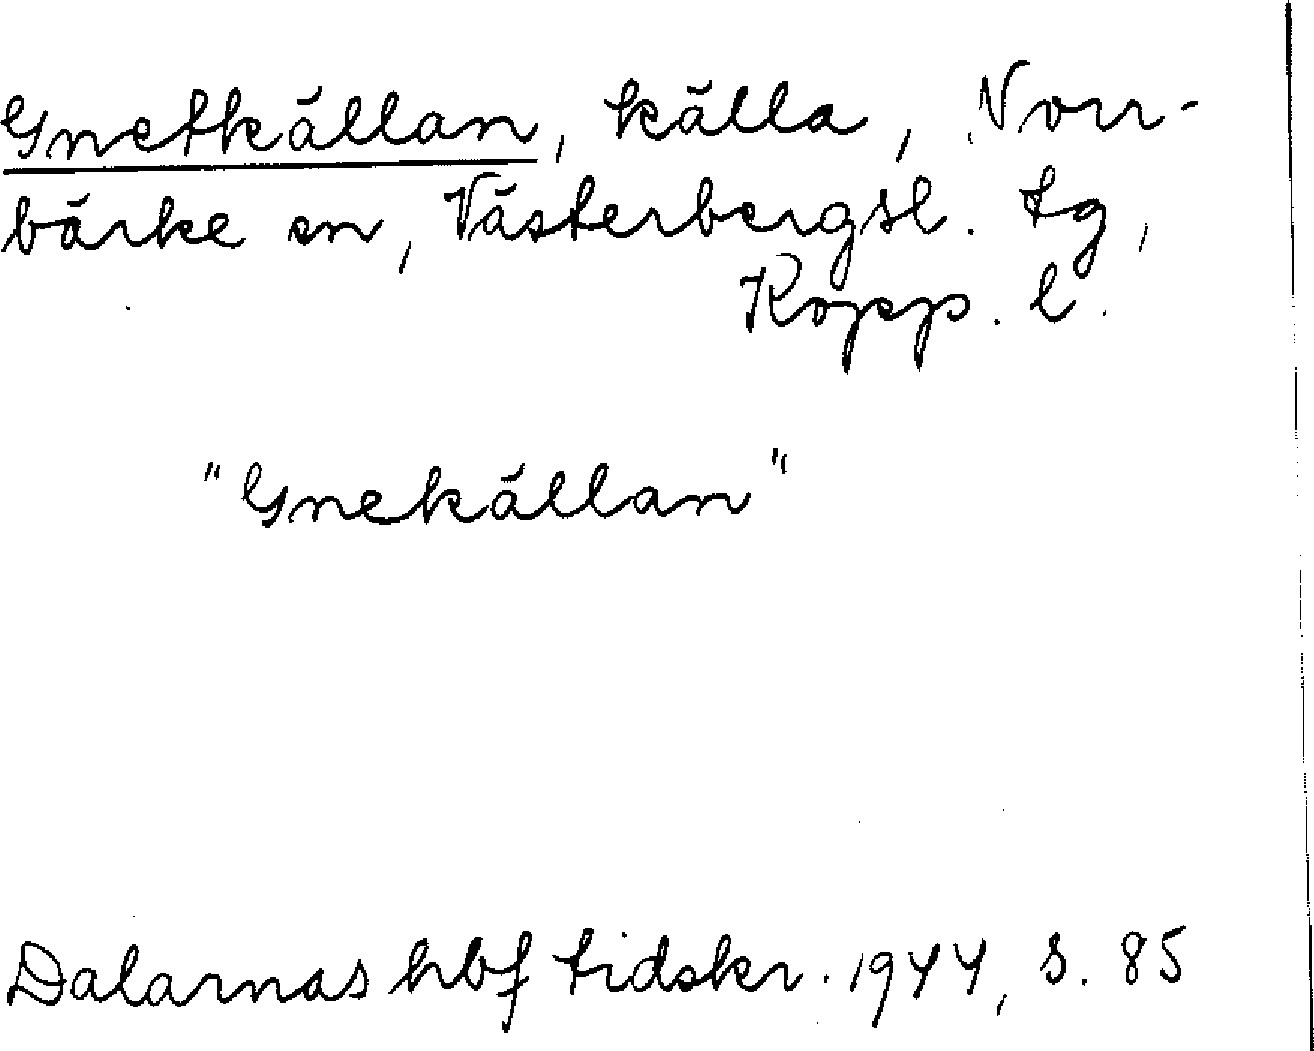 Gnetkällan, källa, Norr-
bärke sn, Västerbergsl. tg,
Kopp. l.
"Gnekällan"
Dalarnas hbf tidskr. 1944, s. 85